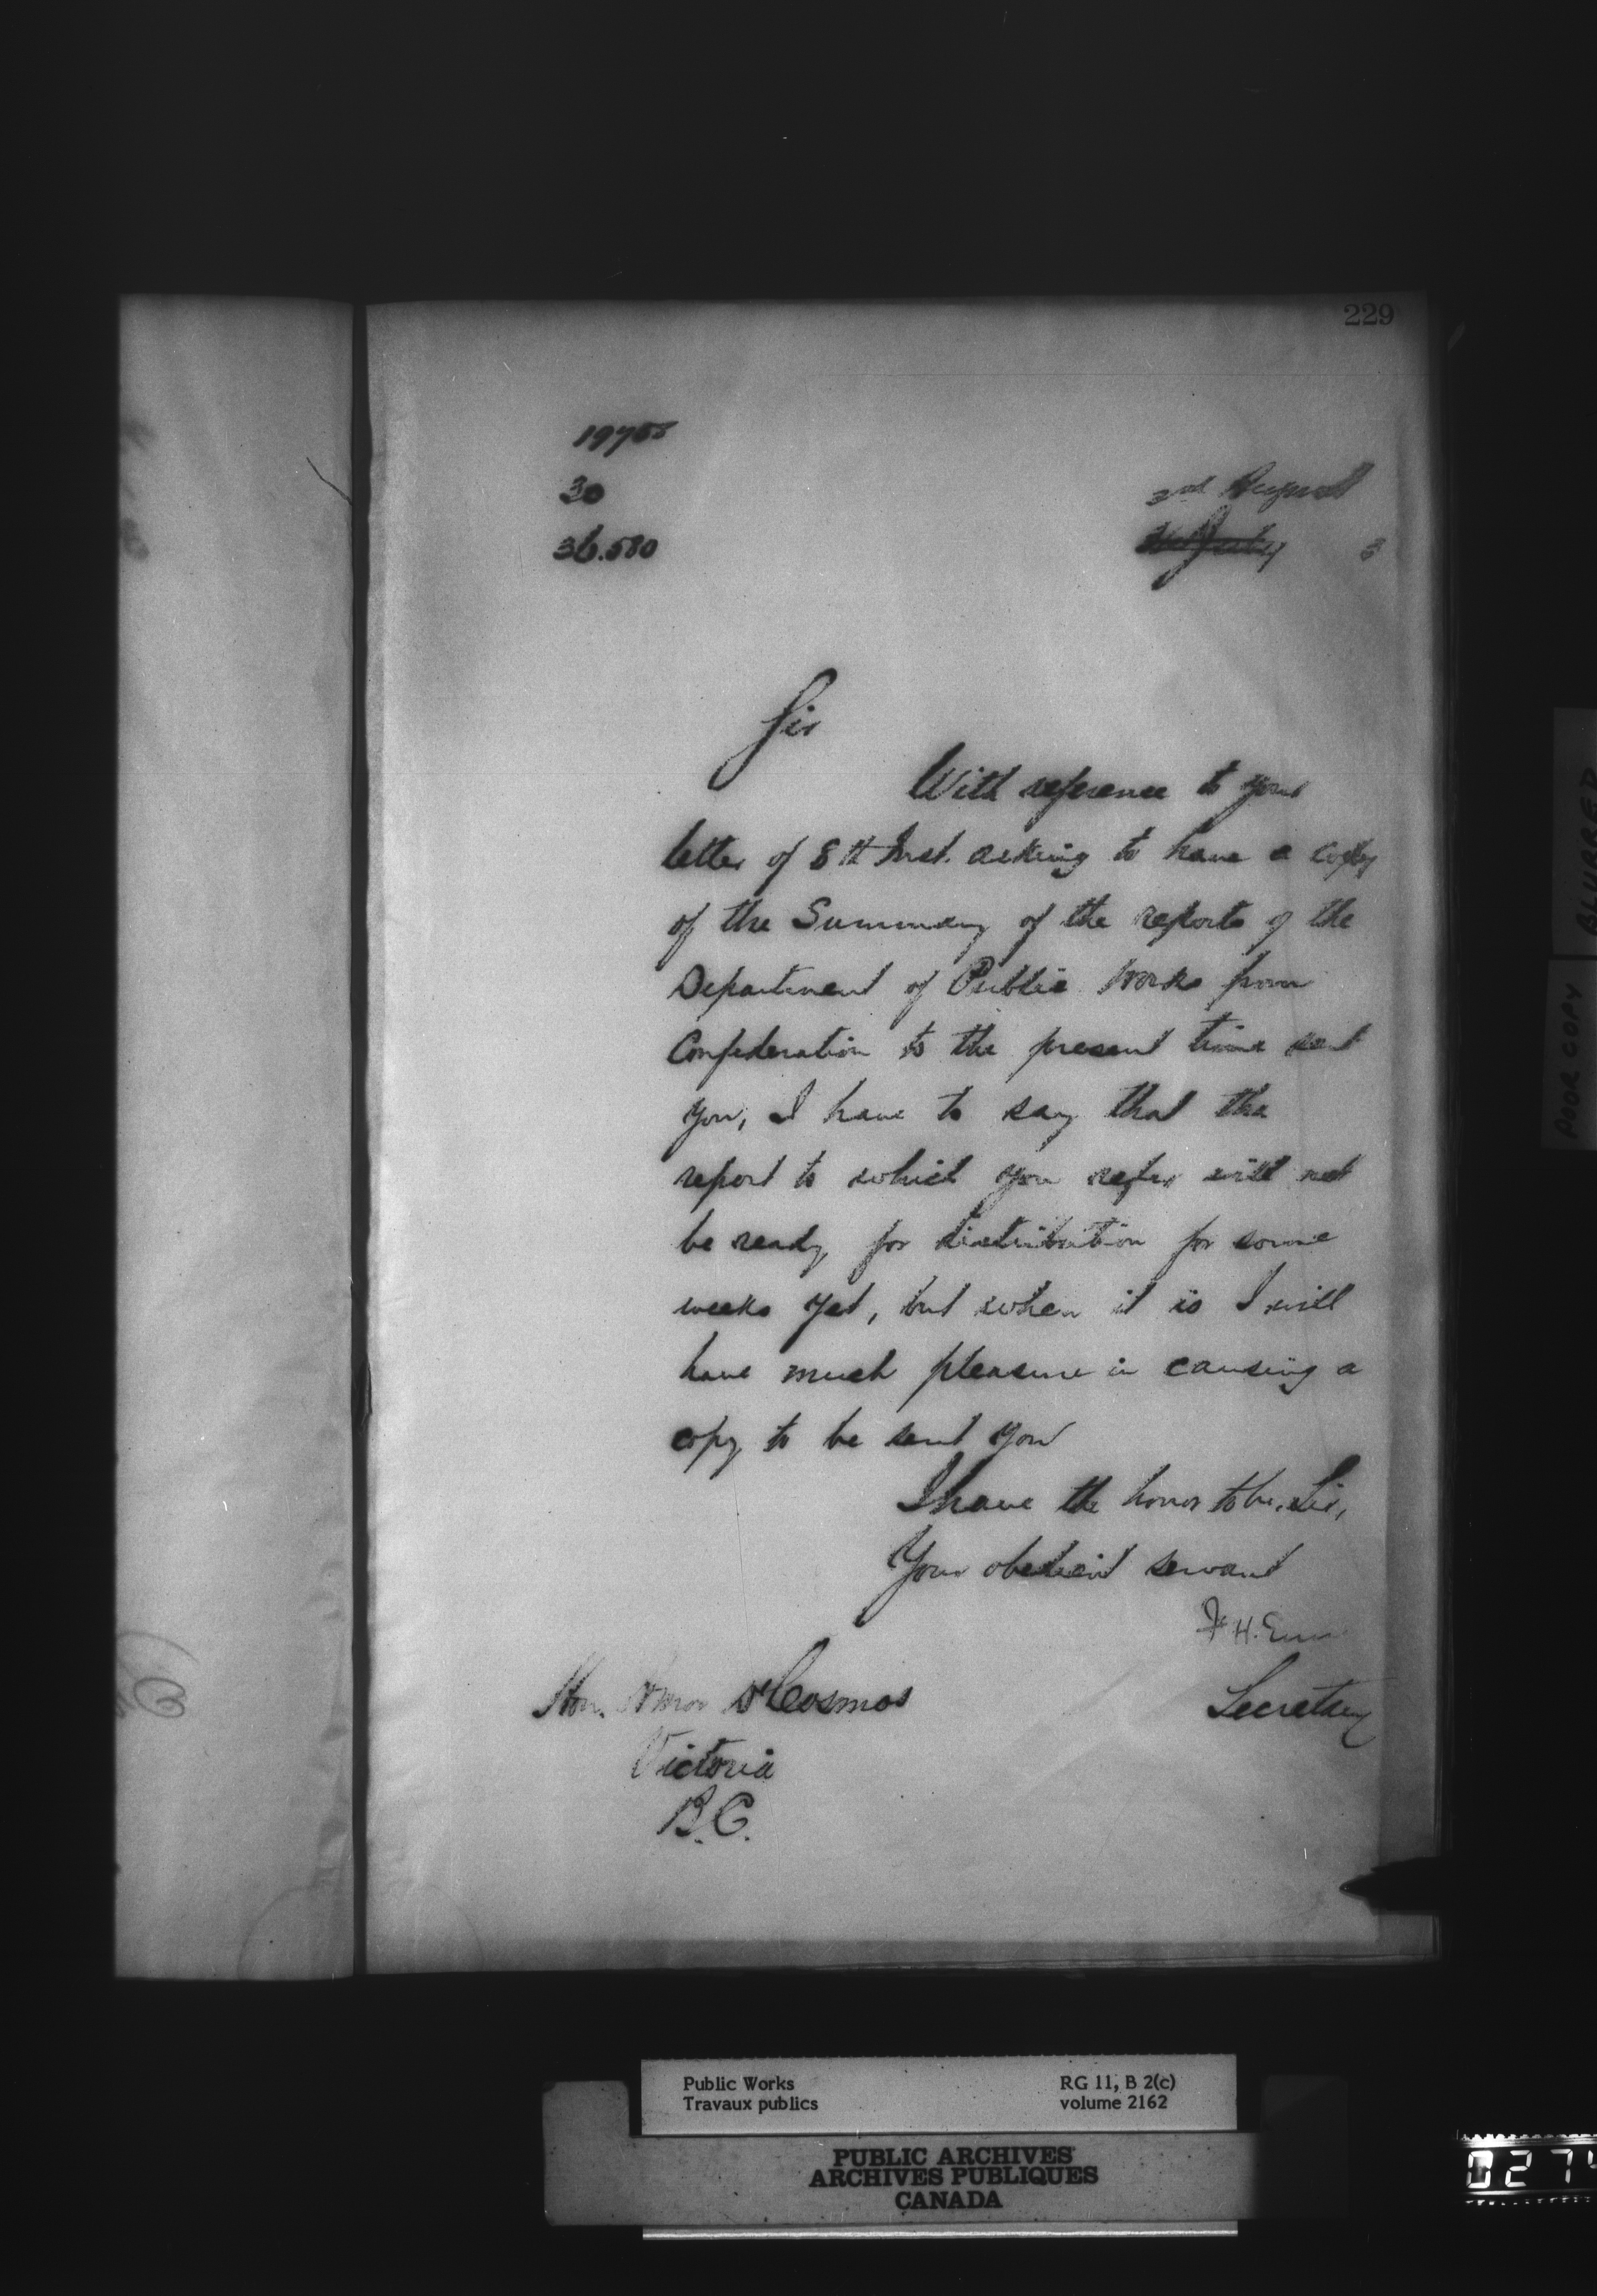 229
30
36.580
2nd August
3
Sir
With reference to your
letter of 8th Inst. asking to have a copy
of the Summary of the reports of the
Department of Public Works from
Confederation to the present time sent
you, I have to say that the
report to which you refer will not
be ready for distribution for some
weeks yet, but when it is I will
have much pleasure in causing a
copy to be sent you
I have the honor to be, Sir,
Your obedient servant
F H. Ennis
Secretary
Hon. Amor DeCosmos
Victoria
B.C.
POOR COPY
BLURRED
Public Works
Travaux publics
RG 11, B 2(c)
volume 2162
PUBLIC ARCHIVES
ARCHIVES PUBLIQUES
CANADA